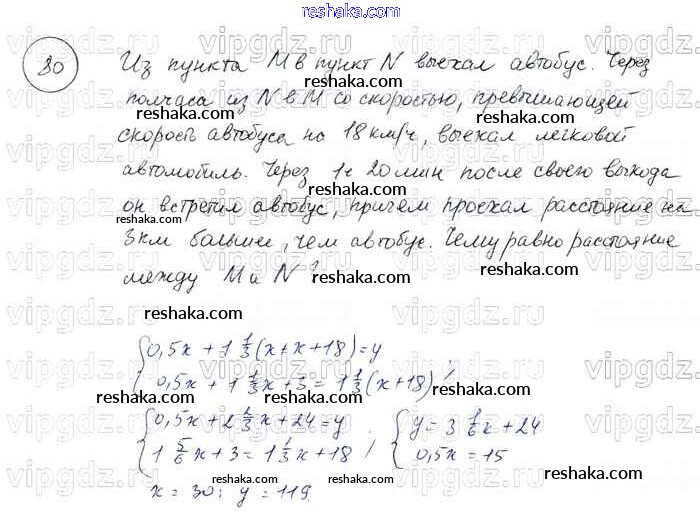 reshaka.com
80
Из пункта М в пункт N выехал автобус. Через
полчаса из N в М со скоростью, превышающей
скорость автобуса на 18 км/ч, выехал легковой
автомобиль. Через 1ч 20 мин после своего выхода
он встретил автобус, причем проехал расстояние на
3 км большее, чем автобус. Чему равно расстояние
между М и N?
0,5x + 1 1/3 (x + x + 18) = y
0,5x + 1 1/3 x + 3 = 1 1/3 (x + 18) ;
0,5x + 2 2/3 x + 24 = y
1 5/6 x + 3 = 1 1/3 x + 18 ;
y = 3 1/6 x + 24
0,5x = 15
x = 30; y = 119.
vipgdz.ru
reshaka.com